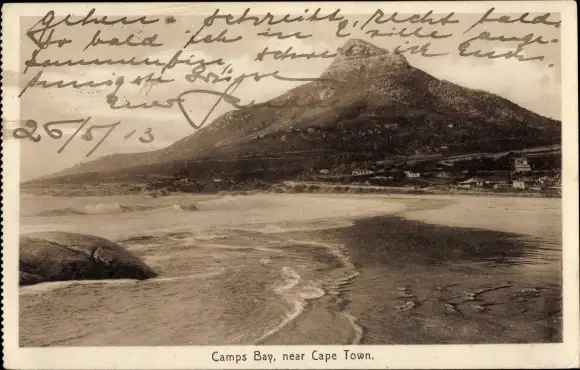 gehen. Schreibt recht bald.
So bald ich in Zille ange-
kommen bin, schreibe ich Euch,
innigste Grüsse
Euer
26/5/13
Camps Bay, near Cape Town.